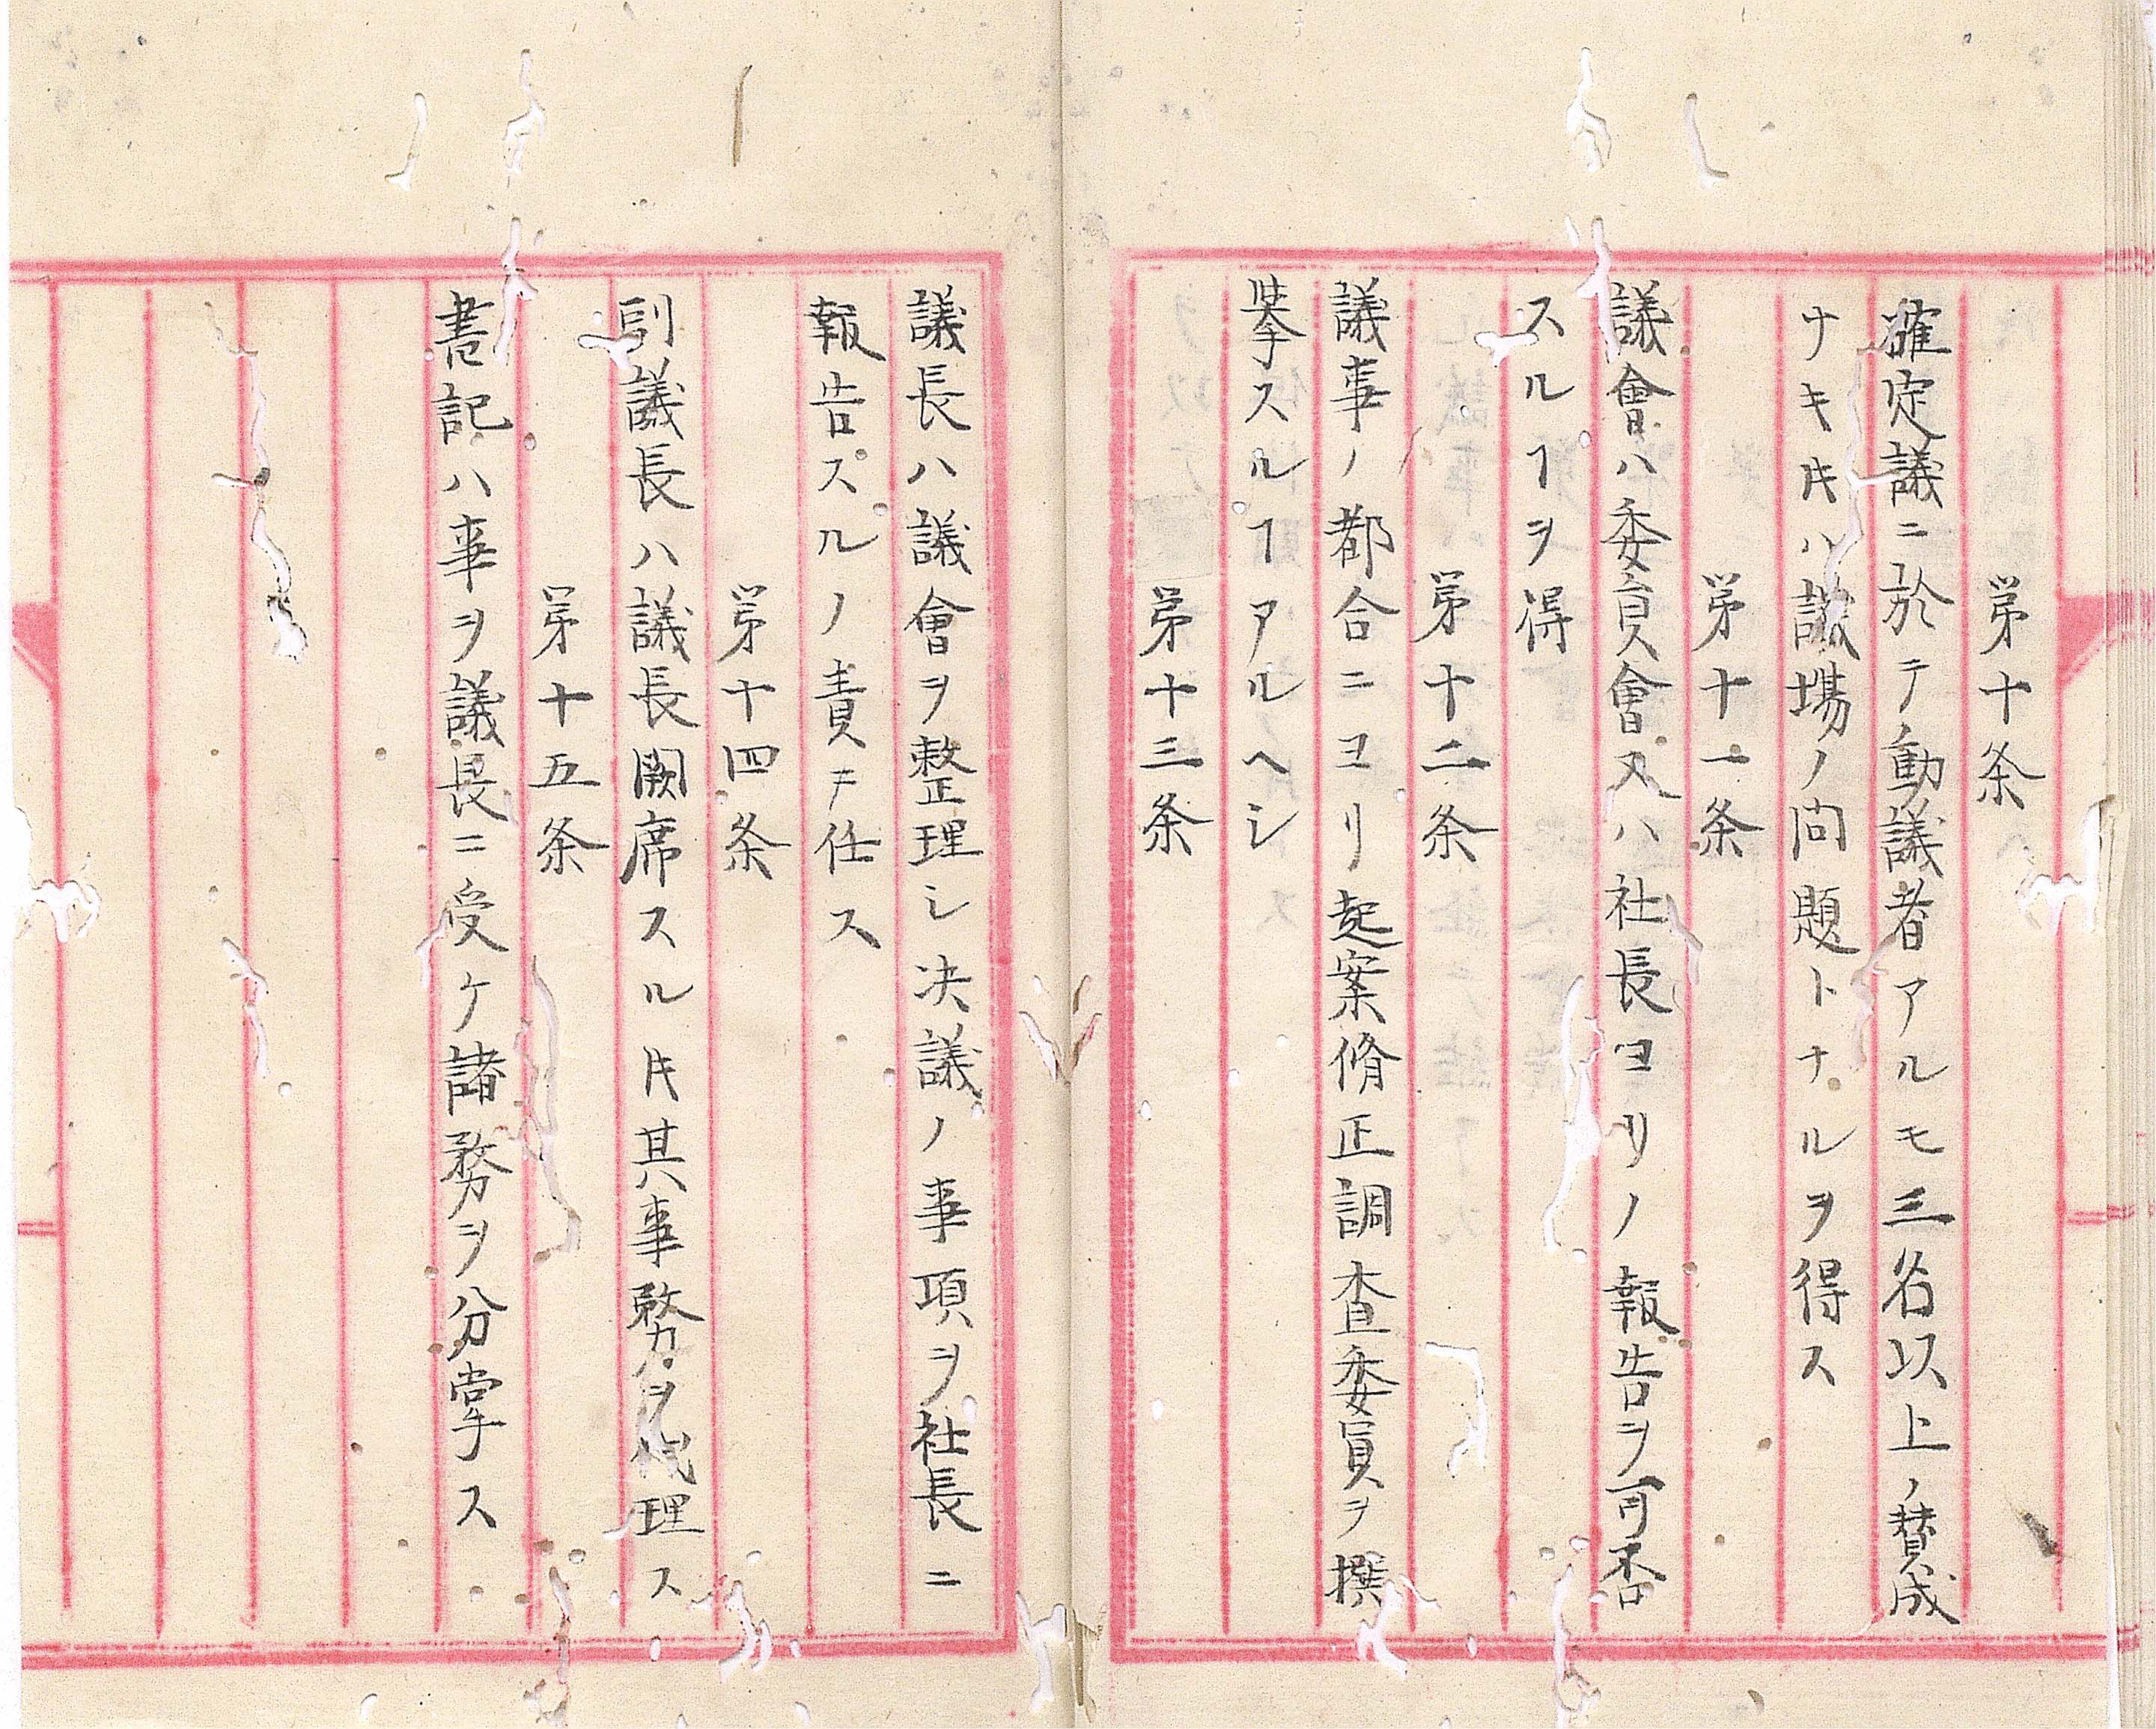 第十条
確定議ニ於テ動議者アルモ三名以上ノ賛成
ナキ𪜈ハ議場ノ問題トナルヲ得ス
第十一条
議會ハ委員會又ハ社長ヨリノ報告ヲ可否
スルヿヲ得
第十二条
議事ノ都合ニヨリ起案脩正調査委員ヲ撰
挙スルヿアルヘシ
第十三条
議長ハ議會ヲ整理シ决議ノ事項ヲ社長ニ
報告スルノ責ヲ任ス
第十四条
副議長ハ議長闕席スル𪜈其事務ヲ代理ス
第十五条
書記ハ事ヲ議長ニ受ケ諸務ヲ分掌ス